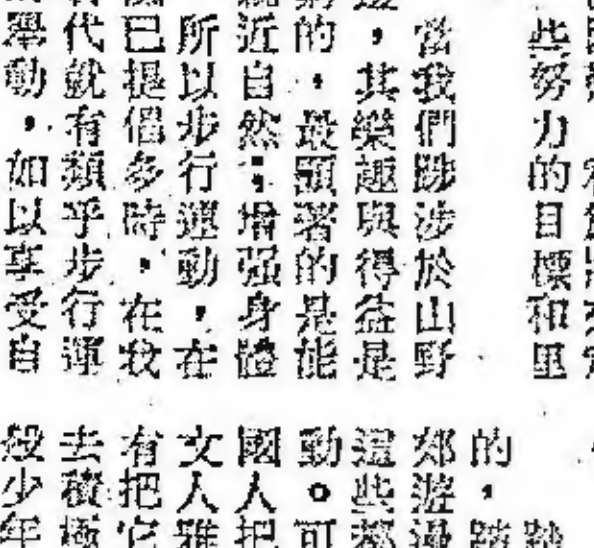 些努力的目標和里
當我們跋涉於山野
,其樂趣與得益是
的,最顯著的是能
近自然;增强身體
所以步行運動,在
已提倡多時,在我
代就有類乎步行運
舉動,如以享受自
的,踏
郊遊
這些都
動。可
國人把
文人雅
有把它
去積極
般少年